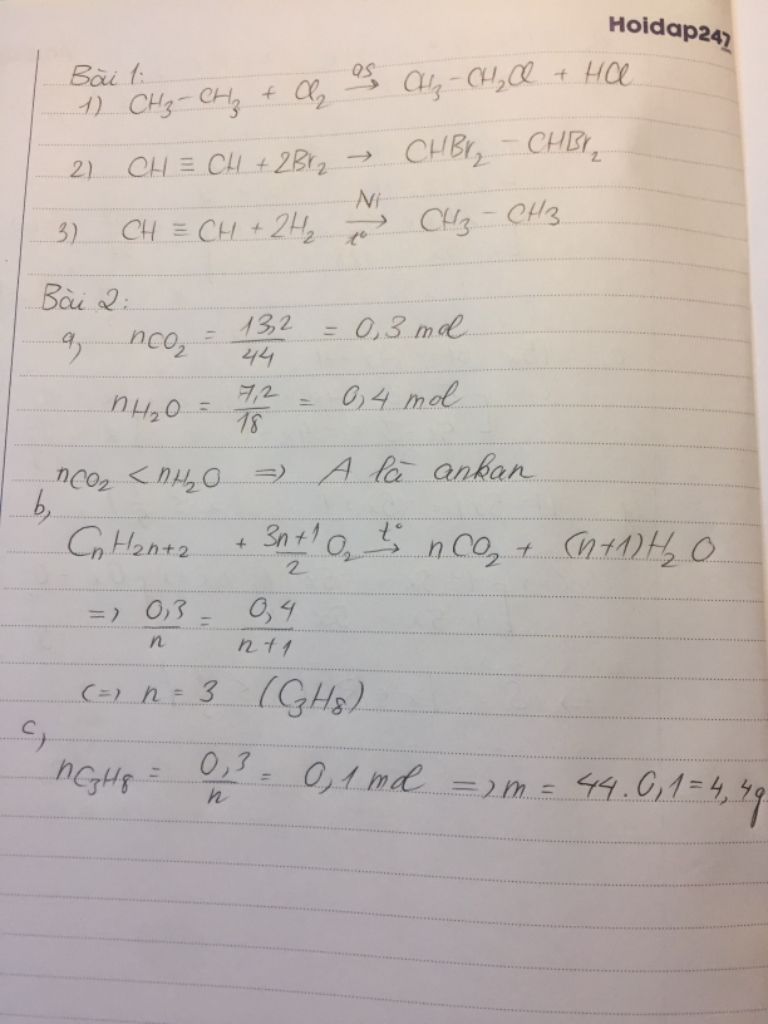 Hoidap247
Bài 1:
1) CH₃-CH₃ + Cl₂ as→ CH₃-CH₂Cl + HCl
2) CH ≡ CH + 2Br₂ → CHBr₂ - CHBr₂
3) CH ≡ CH + 2H₂ Ni→t° CH₃ - CH3
Bài 2:
a, nCO₂ = 13,2/44 = 0,3 mol
nH₂O = 7,2/18 = 0,4 mol
nCO₂ < nH₂O => A là ankan
b,
CnH2n+2 + 3n+1/2 O₂ t°→ nCO₂ + (n+1)H₂O
=> 0,3/n = 0,4/n+1
<=> n = 3 (C₃H₈)
c,
nC₃H₈ = 0,3/n = 0,1 mol => m = 44.0,1=4,4g